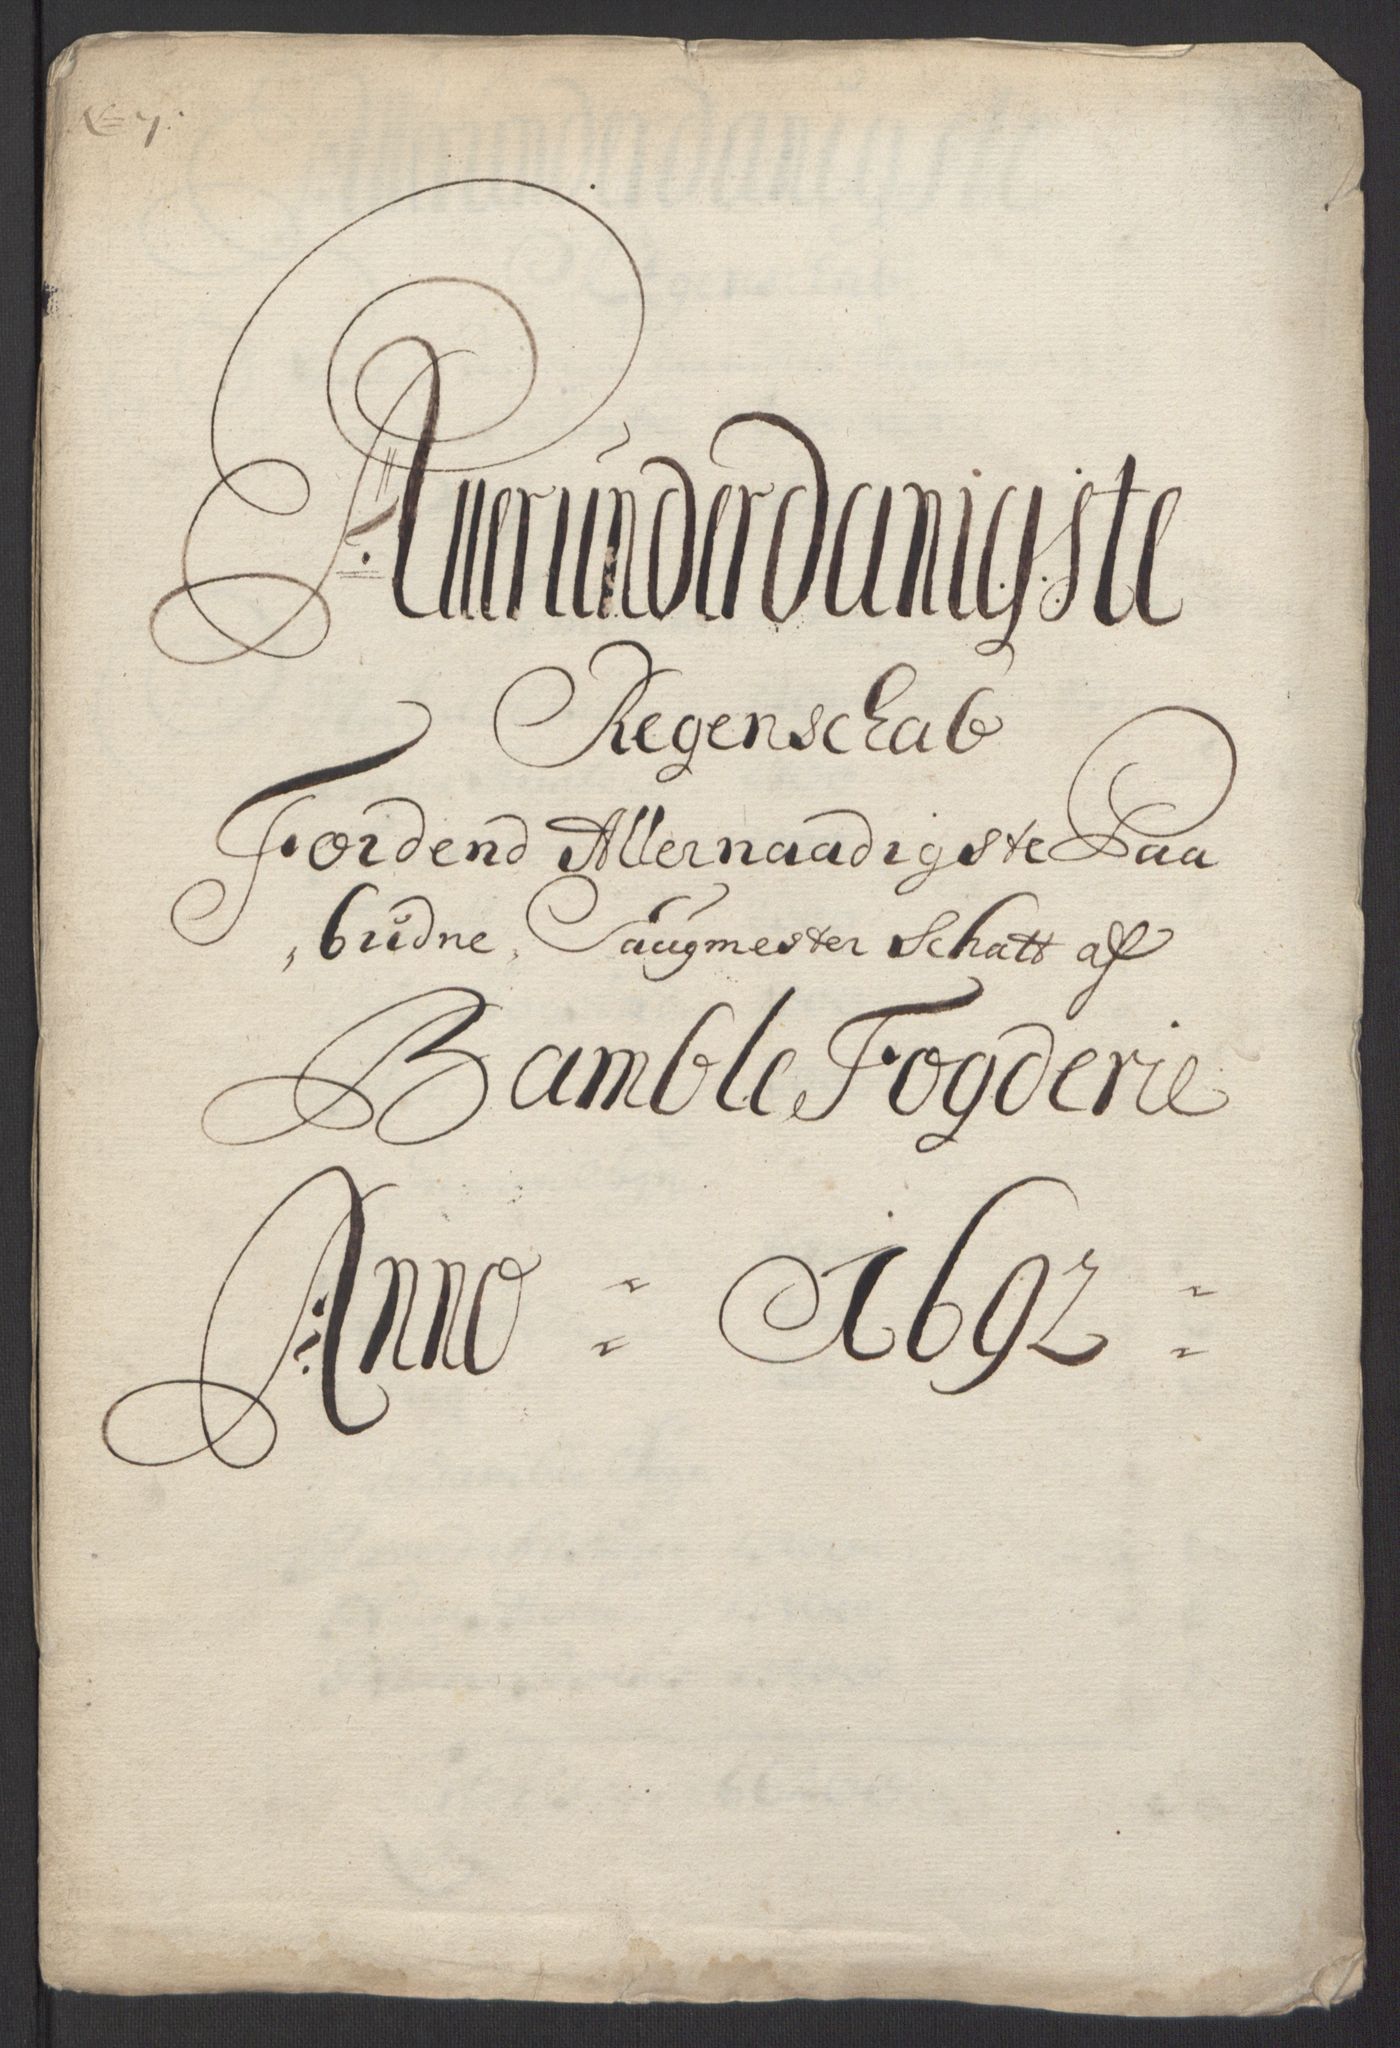 Allerúnderdanigste
Regenschab
Fordend Allernaadigste Paa
,, búdne, Saúgmester Schatt af
Bamble Fogderie
Anno = 1692 =